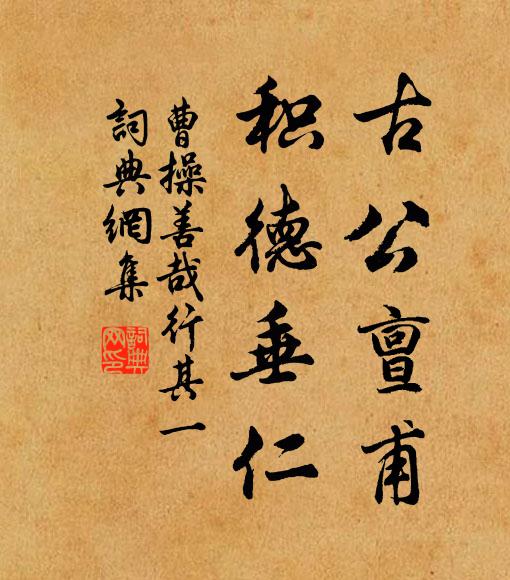 古公亶甫
积德垂仁
曹操善哉行其一
詞典網集
詞典網印